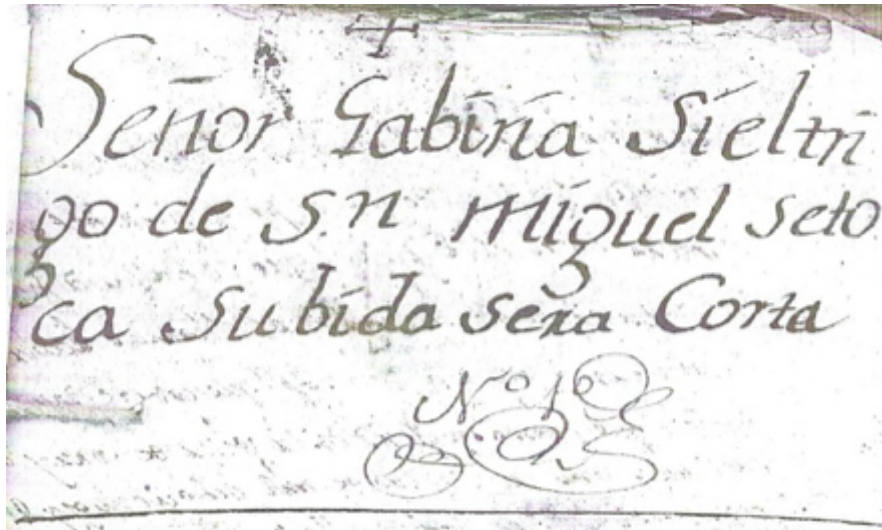 Señor Gabiria Sieltri
go de S.n Miguel seto
ca Su bida sera Corta
Nº 1º